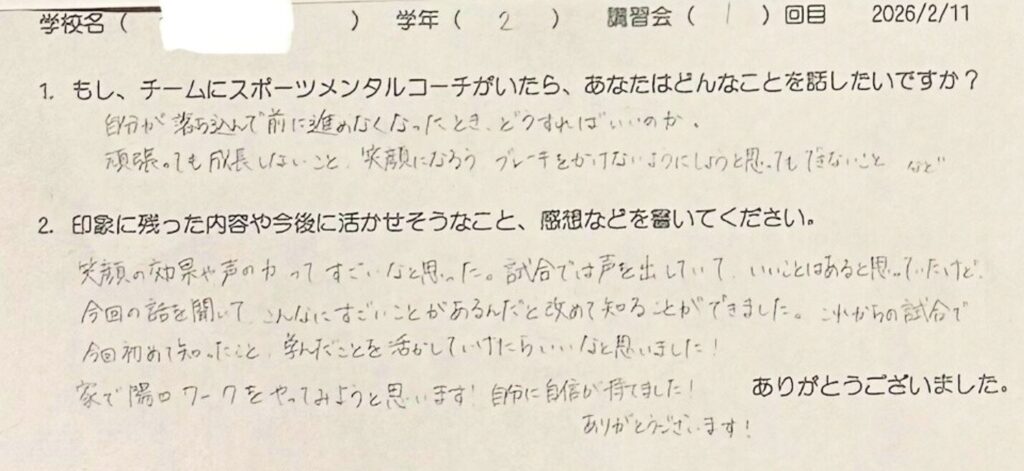 学校名( ) 学年( 2 ) 講習会( 1 )回目 2026/2/11
1. もし、チームにスポーツメンタルコーチがいたら、あなたはどんなことを話したいですか？
自分が落ち込んで前に進めなくなったとき、どうすればいいのか。
頑張っても成長しないこと、笑顔になろう ブレーキをかけないようにしようと思ってもできないこと など
2. 印象に残った内容や今後に活かせそうなこと、感想などを書いてください。
笑顔の効果や声の力ってすごいなと思った。試合では声を出していて、いいことはあると思っていたけど、
今回の話を聞いて、こんなにすごいことがあるんだと改めて知ることができました。これからの試合で
今回初めて知ったこと、学んだことを活かしていけたらいいなと思いました！
家で陽口ワークをやってみようと思います！自分に自信が持てました！
ありがとうございました。
ありがとうございます！